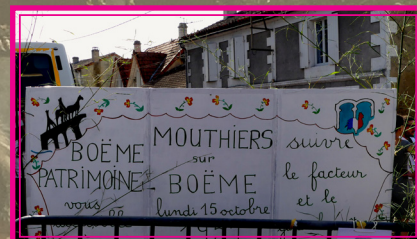 BOËME
PATRIMOINE
vous
MOUTHIERS
sur
BOËME
lundi 15 octobre
suivre
le facteur
et le